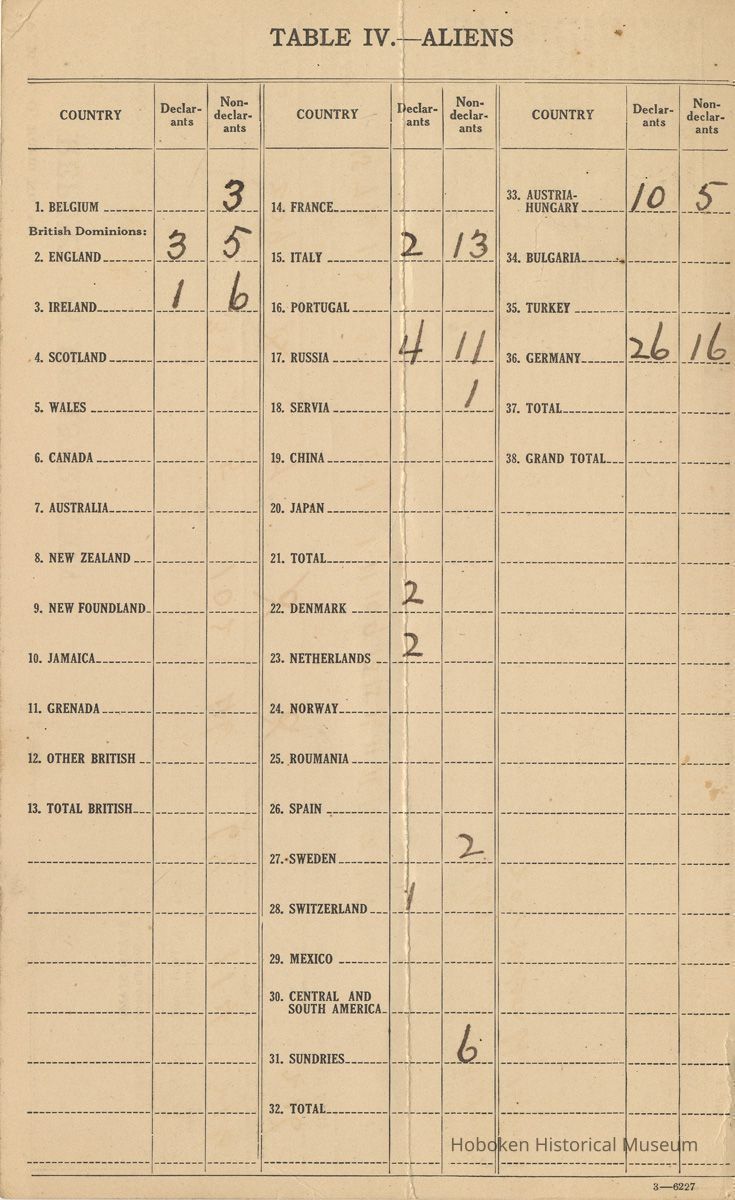 TABLE IV.—ALIENS
COUNTRY Declar-ants Non-declar-ants
1. BELGIUM 3
British Dominions:
2. ENGLAND 3 5
3. IRELAND 1 6
4. SCOTLAND
5. WALES
6. CANADA
7. AUSTRALIA
8. NEW ZEALAND
9. NEW FOUNDLAND
10. JAMAICA
11. GRENADA
12. OTHER BRITISH
13. TOTAL BRITISH
COUNTRY Declar-ants Non-declar-ants
14. FRANCE
15. ITALY 2 13
16. PORTUGAL
17. RUSSIA 4 11
18. SERVIA 1
19. CHINA
20. JAPAN
21. TOTAL
22. DENMARK 2
23. NETHERLANDS 2
24. NORWAY
25. ROUMANIA
26. SPAIN
27. SWEDEN 2
28. SWITZERLAND 1
29. MEXICO
30. CENTRAL AND
SOUTH AMERICA
31. SUNDRIES 6
32. TOTAL
COUNTRY Declar-ants Non-declar-ants
33. AUSTRIA-
HUNGARY 10 5
34. BULGARIA
35. TURKEY
36. GERMANY 26 16
37. TOTAL
38. GRAND TOTAL
Hoboken Historical Museum
3—6227